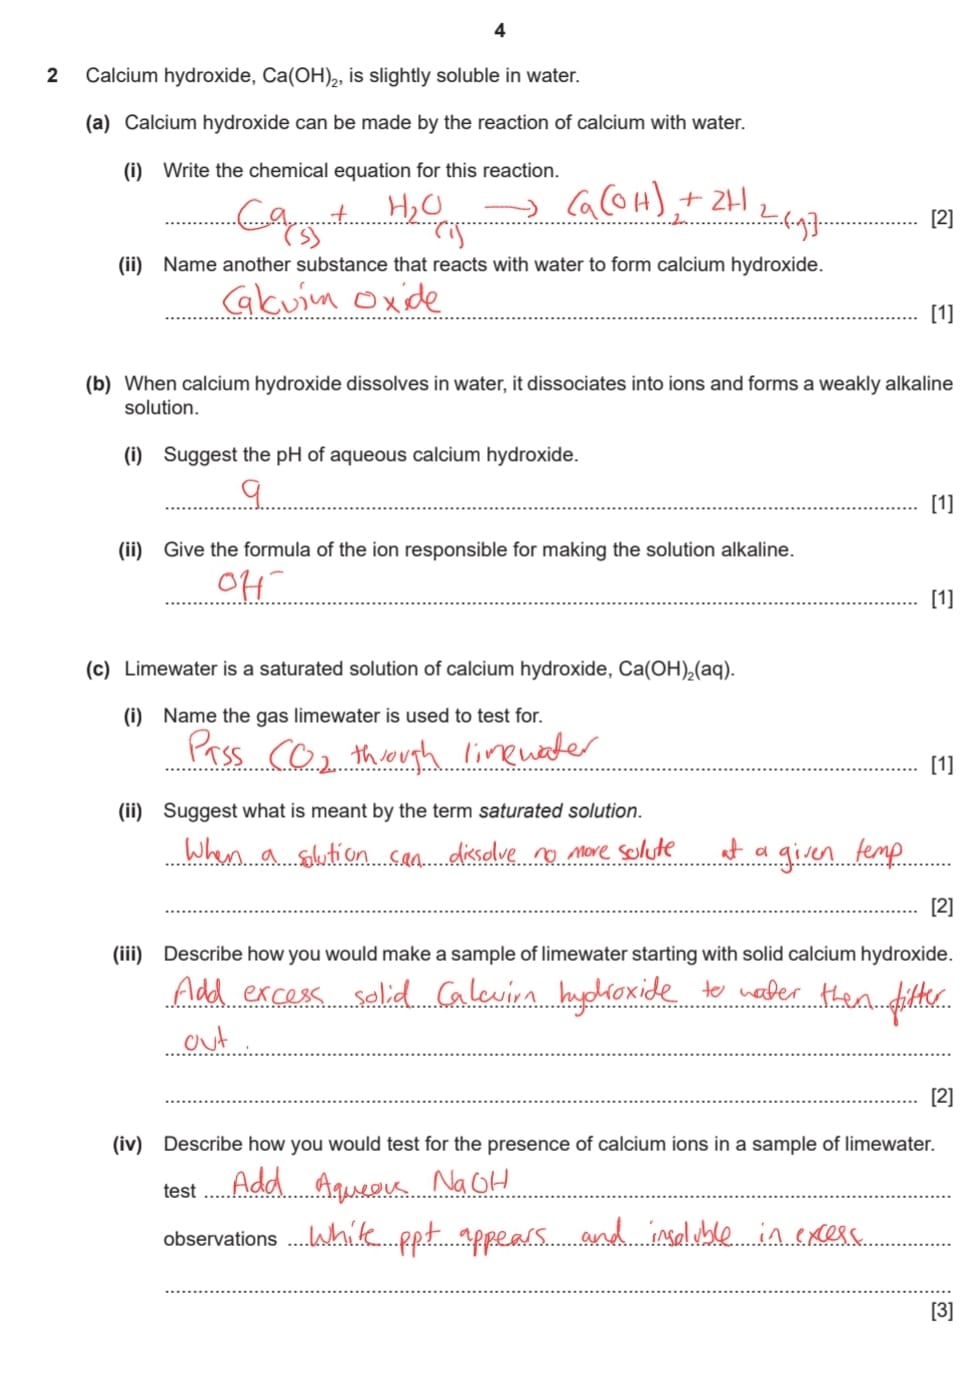 4
2 Calcium hydroxide, Ca(OH)₂, is slightly soluble in water.
(a) Calcium hydroxide can be made by the reaction of calcium with water.
(i) Write the chemical equation for this reaction.
Ca(s) + H₂O(l) → Ca(OH)₂ + 2H₂(g) [2]
(ii) Name another substance that reacts with water to form calcium hydroxide.
Calcuim oxide [1]
(b) When calcium hydroxide dissolves in water, it dissociates into ions and forms a weakly alkaline
solution.
(i) Suggest the pH of aqueous calcium hydroxide.
9 [1]
(ii) Give the formula of the ion responsible for making the solution alkaline.
OH⁻ [1]
(c) Limewater is a saturated solution of calcium hydroxide, Ca(OH)₂(aq).
(i) Name the gas limewater is used to test for.
Pass CO₂ through limewater [1]
(ii) Suggest what is meant by the term saturated solution.
When a solution can dissolve no more solute at a given temp
[2]
(iii) Describe how you would make a sample of limewater starting with solid calcium hydroxide.
Add excess solid Calcuim hydroxide to water then filter
out .
[2]
(iv) Describe how you would test for the presence of calcium ions in a sample of limewater.
test Add Aqueous NaOH
observations White ppt appears and insoluble in excess
[3]